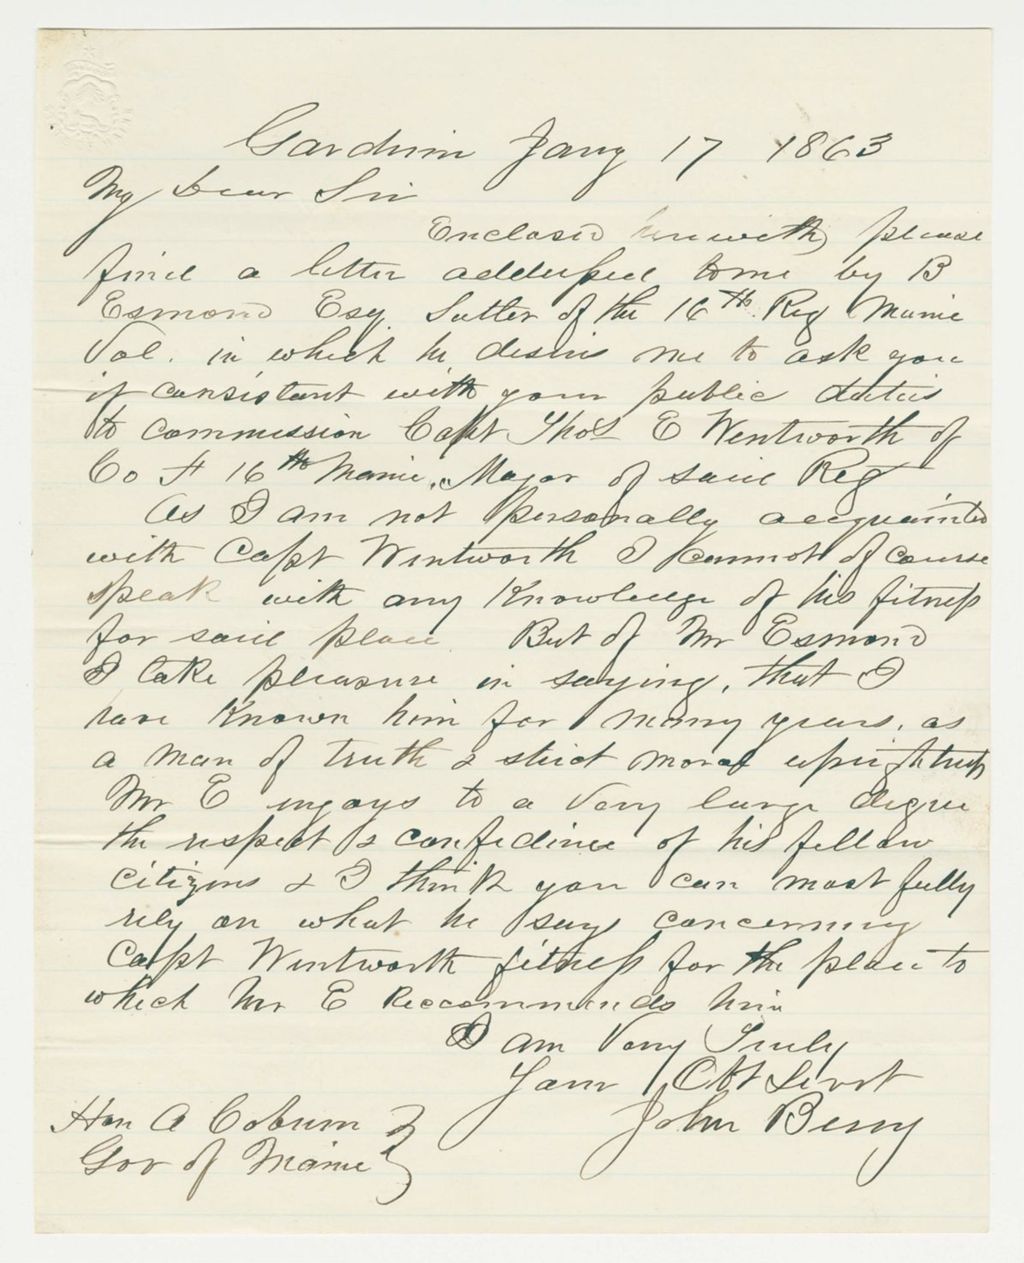 Gardiner Jany 17 1863
My Dear Sir
Enclosed herewith please
find a letter addressed to me by B
Esmond Esq. Sutler of the 16th Reg Maine
Vol. in which he desires me to ask you
if consistent with your public duties
to commission Capt Thos E Wentworth of
Co F 16th Maine, Major of said Reg
As I am not personally acquainted
with Capt Wentworth I cannot of course
speak with any Knowledge of his fitness
for said place But of Mr Esmond
I take pleasure in saying, that I
have Known him for many years, as
a man of truth & strict moral uprightness
Mr E enjoys to a Very large degree
the respect & confidence of his fellow
citizens & I think you can most fully
rely on what he says concerning
Capt Wentworth fitness for the place to
which Mr E Reccommends him
I am Very Truly
Your Obt Servt
John Berry
Hon A Coburn
Gov of Maine